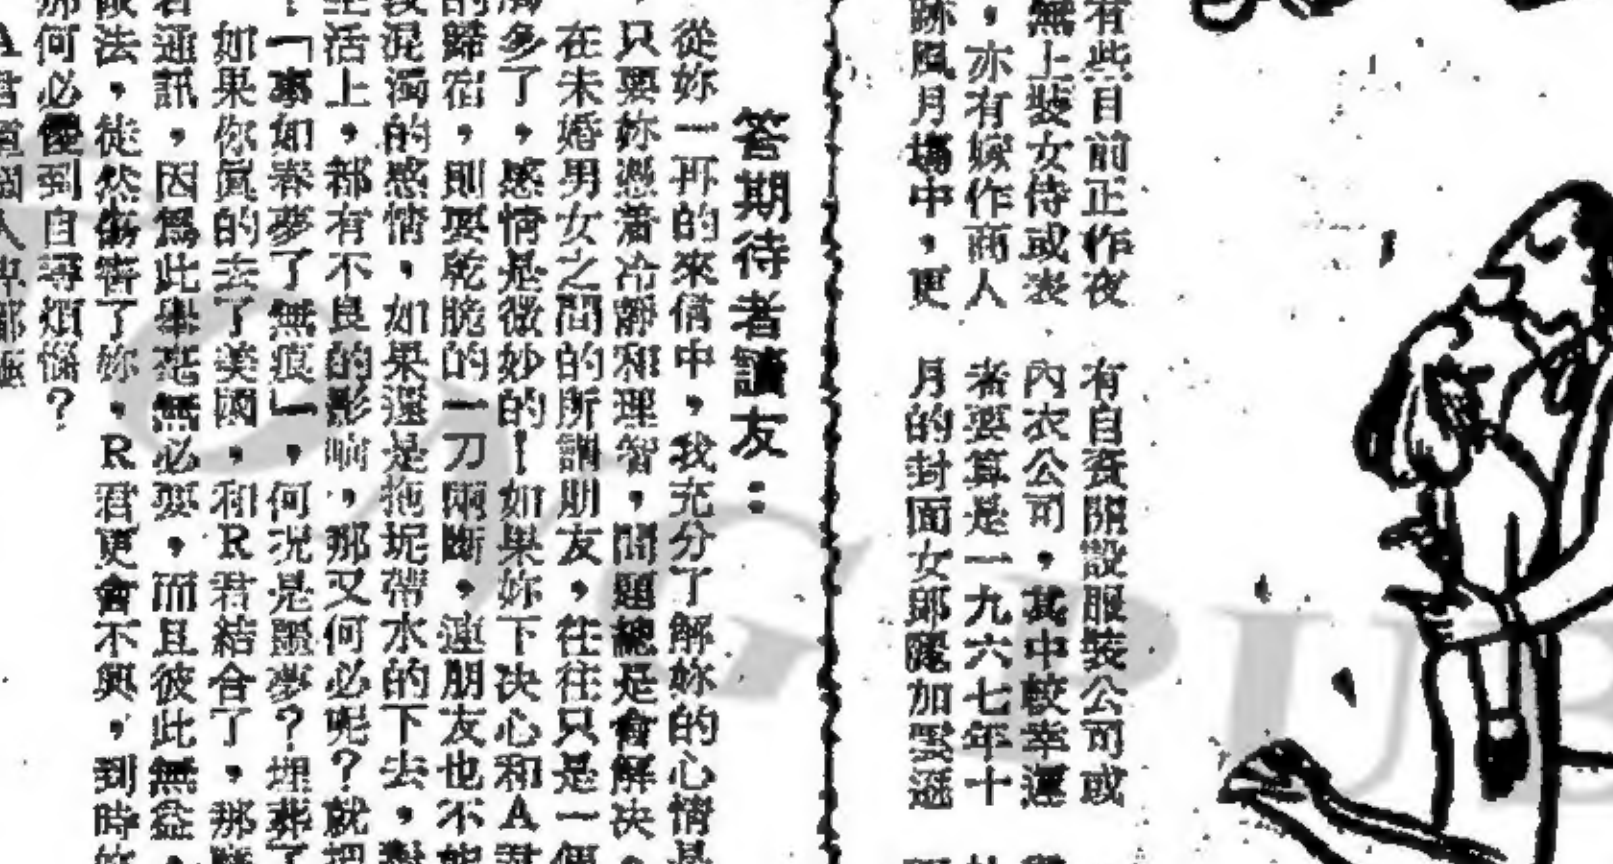 有些目前正作夜
無上裝女侍或表
，亦有嫁作商人
跡風月場中，更
有自資開設服裝公司或
內衣公司，其中較幸運
者要算是一九六七年十
月的封面女郎
加
答期待者讀友：
從妳一再的來信中，我充分了解妳的心情是
，只要妳憑着冷靜和理智，問題總是會解决。
在未婚男女之間的所謂朋友，往往只是一個
多了，感情是微妙的！如果妳下决心和A君
的歸宿，則要乾脆的一刀兩斷，連朋友也不能
混濁的感情，如果還是拖坭帶水的下去，對
生活上，都有不良的影响，那又何必呢？就把
「事如春夢了無痕」，何况是噩夢？埋葬了
如果你眞的去了美國，和R君結合了，那
君通訊，因爲此舉死無必要，而且彼此無益，
法，徒然傷害了妳，R君更會不興，到時
何必優到自尋煩惱？
A君
個人
都
PUB